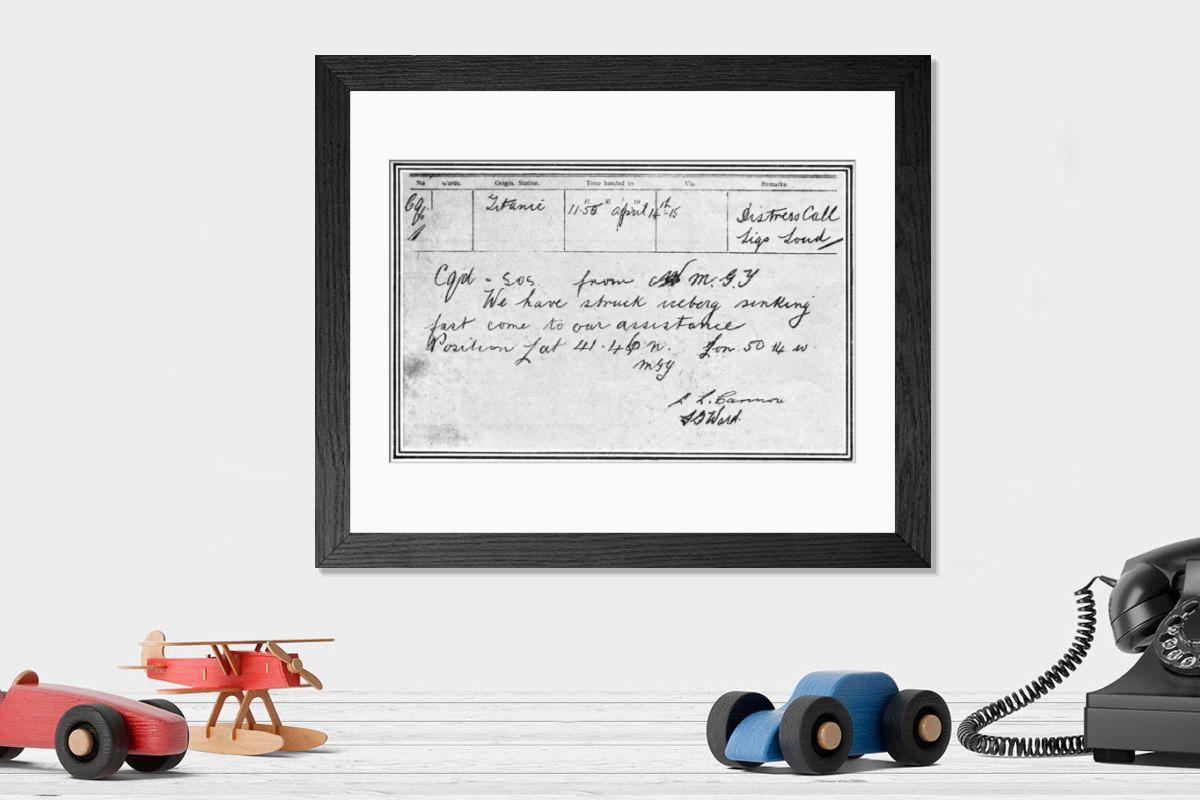 No words. Origin. Station. Time handed in Via. Remarks.
Cqd Titanic H. M 11.55 april 14th-15 Distress Call
Sigs Loud
Cqd - SOS. from M.G.Y
We have struck iceberg sinking
fast come to our assistance
Position Lat 41.46 n. Lon. 50 14 w.
MGY
L. Cannon
Ward